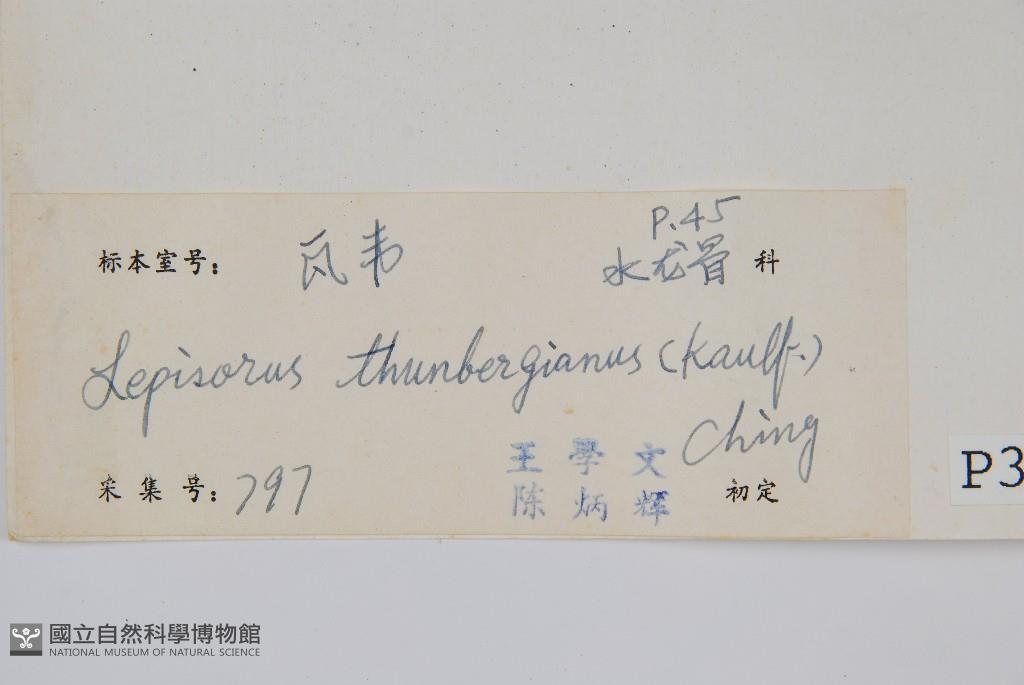 P.45
标本室号: 瓦韦 水龙骨 科
Lepisorus thunbergianus (Kaulf.)
Ching
王學文
采集号: 797 陈炳辉 初定
P3
國立自然科學博物館
NATIONAL MUSEUM OF NATURAL SCIENCE